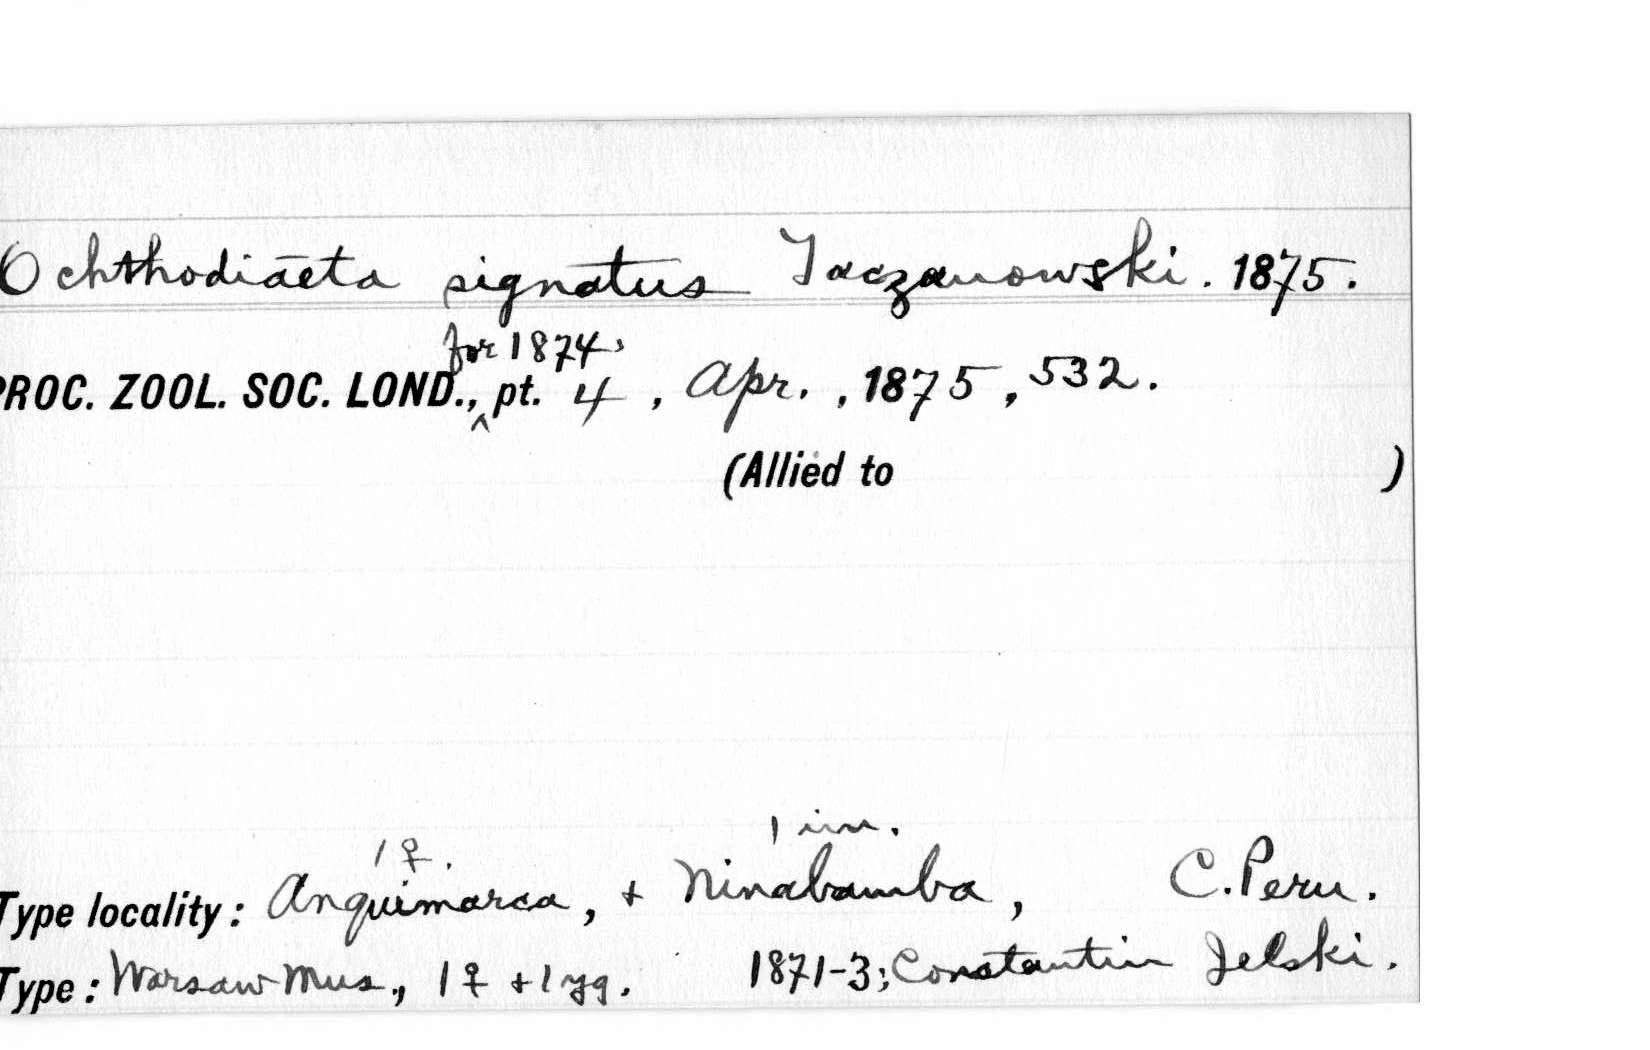 Ochthodiaeta signatus Taczanowski. 1875.
for 1874,
PROC. ZOOL. SOC. LOND., ^ pt. 4, Apr., 1875, 532.
(Allied to )
1 ♀. 1 im.
Type locality: Anquimarca, + Ninabamba, C. Peru.
Type: Warsaw Mus., 1 ♀ + 1 yg. 1871-3; Constantin Jelski.